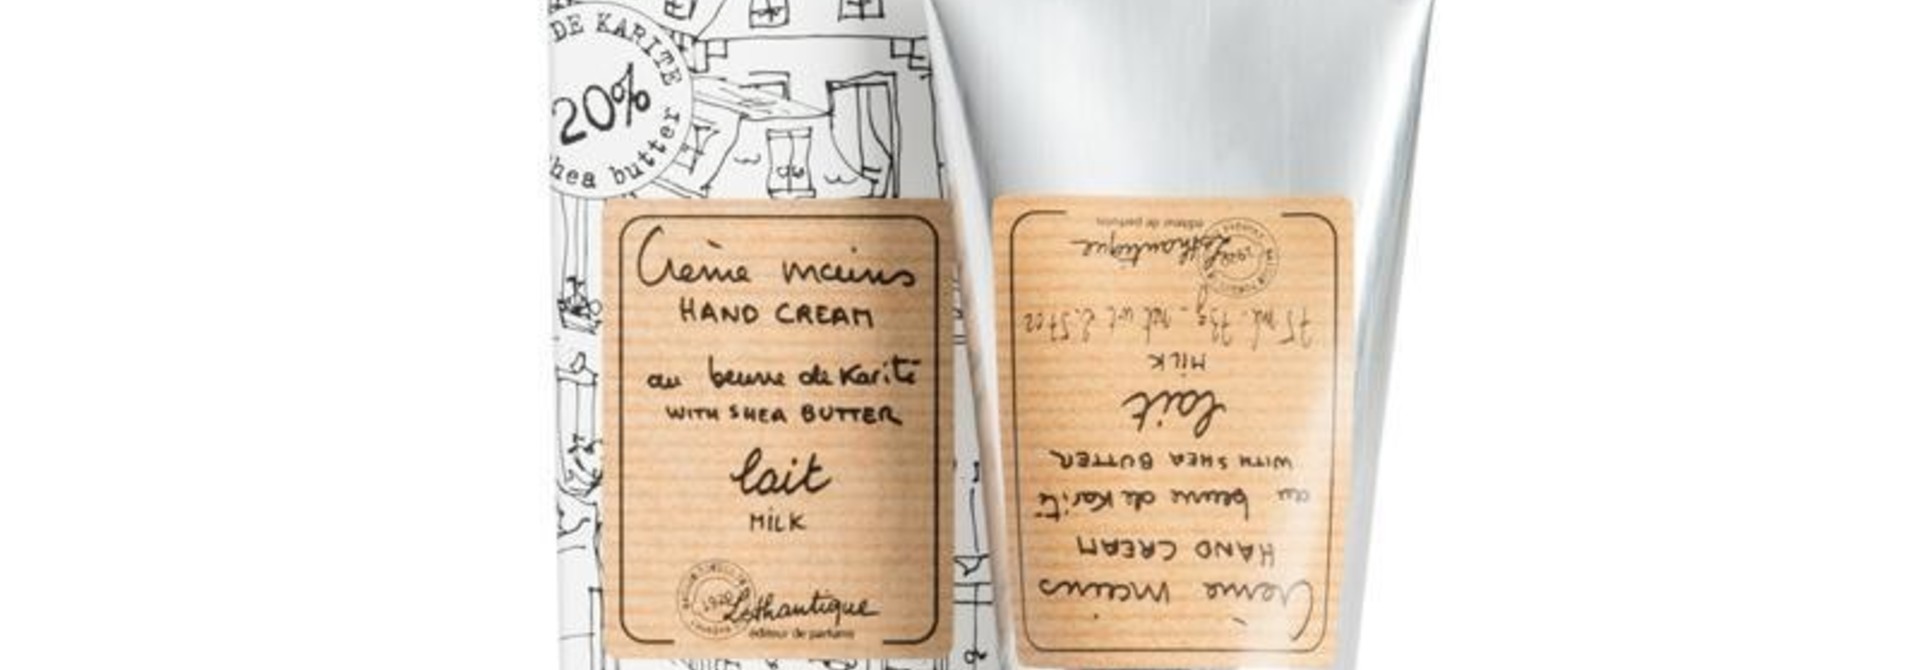 DE KARITE
20%
hea butter
Crème mains
HAND CREAM
au beurre de Karité
WITH SHEA BUTTER
lait
MILK
1920
Lothantique
éditeur de parfums
Crème mains
HAND CREAM
au beurre de Karité
WITH SHEA BUTTER
lait
MILK
75 ml. 73g - net wt 2.57oz
1920
Lothantique
éditeur de parfums